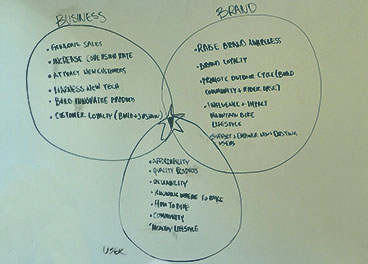 BUSINESS
• INCREASE SALES
• INCREASE CONVERSION RATE
• ATTRACT NEW CUSTOMERS
• HARNESS NEW TECH
• BUILD INNOVATIVE PRODUCT
• CUSTOMER LOYALTY (BUILD + SUSTAIN)
BRAND
• RAISE BRAND AWARENESS
• BRAND LOYALTY
• PROMOTE OUTDOOR CYCLE (BUILD
COMMUNITY & RIDER BASE)
• INFLUENCE + IMPACT
MOUNTAIN BIKE
LIFESTYLE
• SUPPORT & EMPOWER NEW & EXISTING
USERS
• AFFORDABILITY
• QUALITY PRODUCTS
• RELIABILITY
• KNOWING WHERE TO BIKE
• HOW TO BIKE
• COMMUNITY
• HEALTHY LIFESTYLE
USER